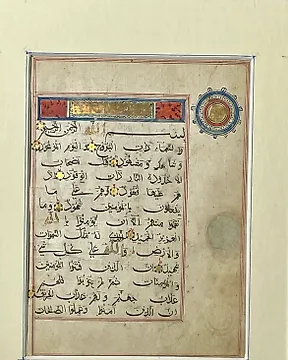 بسم الله الرحمن الرحيم
والسماء ذات البروج واليوم الموعود
وشاهد ومشهود قتل اصحاب
الاخدود النار ذات الوقود اذ
هم عليها قعود وهم على ما
يفعلون بالمؤمنين شهود وما
نقموا منهم الا ان يؤمنوا بالله
العزيز الحميد الذي له ملك السموات
والارض والله على كل شي
شهيد ان الذين فتنوا المؤمنين
والمؤمنات ثم لم يتوبوا فلهم
عذاب جهنم ولهم عذاب الحريق
ان الذين امنوا وعملوا الصالحات